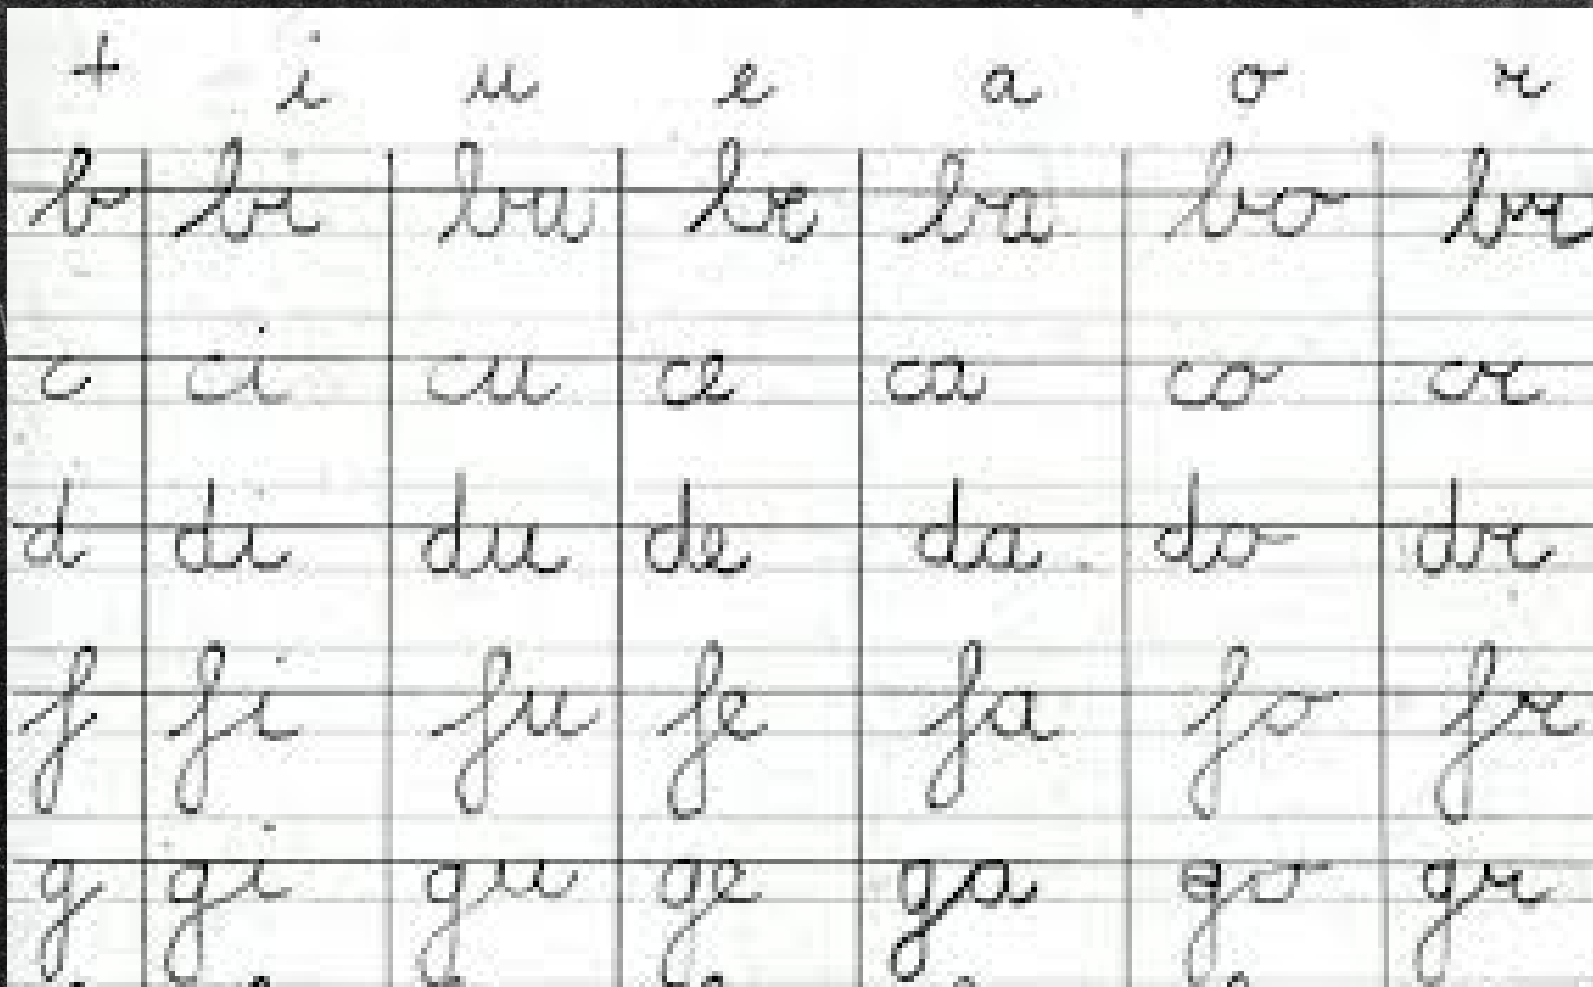 + i u e a o r
b bi bu be ba bo br
c ci cu ce ca co cr
d di du de da do dr
f fi fu fe fa fo fr
g gi gu ge ga go gr